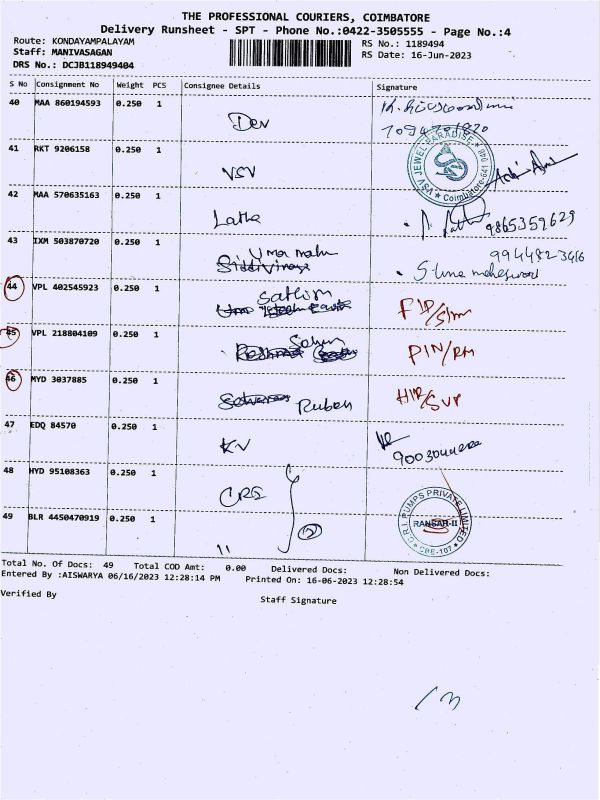 THE PROFESSIONAL COURIERS, COIMBATORE
Delivery Runsheet - SPT - Phone No.:0422-3505555 - Page No.:4
Route: KONDAYAMPALAYAM
RS No.: 1189494
Staff: MANIVASAGAN
RS Date: 16-Jun-2023
DRS No.: DCJB118949404
S No Consignment No Weight PCS Consignee Details Signature
40 MAA 860194593 0.250 1 Dev
41 RKT 9206158 0.250 1 VSV
VSV JEWEL PARADISE
Coimbatore-641
42 MAA 570635163 0.250 1 Latha 9865359629
43 IXM 503870720 0.250 1 Uma mahe 9944823416
44 VPL 402545923 0.250 1 Sathish
45 VPL 218804109 0.250 1 PIN/RM
46 MYD 3037885 0.250 1 Ruben
47 EDQ 84570 0.250 1 KV
48 HYD 95108363 0.250 1
C.R.I. PUMPS PRIVATE LIMITED
RANSAR-II
CBE-107
49 BLR 4450470919 0.250 1 " 2
Total No. Of Docs: 49 Total COD Amt: 0.00 Delivered Docs: Non Delivered Docs:
Entered By :AISWARYA 06/16/2023 12:28:14 PM Printed On: 16-06-2023 12:28:54
Verified By
Staff Signature